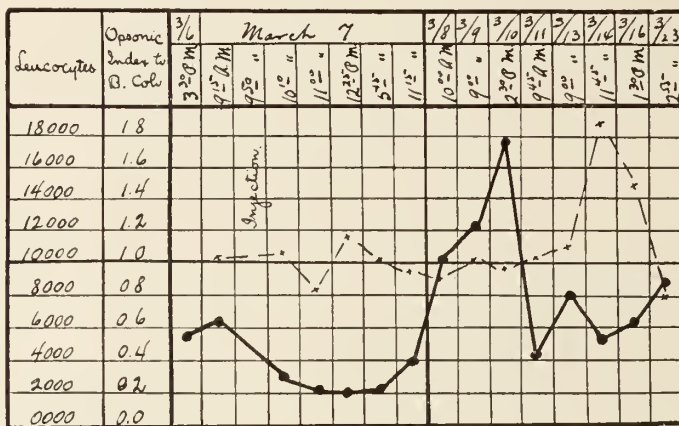 Leucocytes
Opsonic
Index to
B. Coli
3/6 March 7 3/8 3/9 3/10 3/11 3/13 3/14 3/16 3/23
3 30 P M
9 15 A M
9 50 "
10 10 "
11 00 "
12 25 P M
5 45 "
11 15 "
10 00 A M
9 00 "
2 30 P M
9 45 A M
9 00 "
11 45 "
1 30 P M
2 55 "
Injection.
18000 1.8
16000 1.6
14000 1.4
12000 1.2
10000 1.0
8000 0.8
6000 0.6
4000 0.4
2000 0.2
0000 0.0